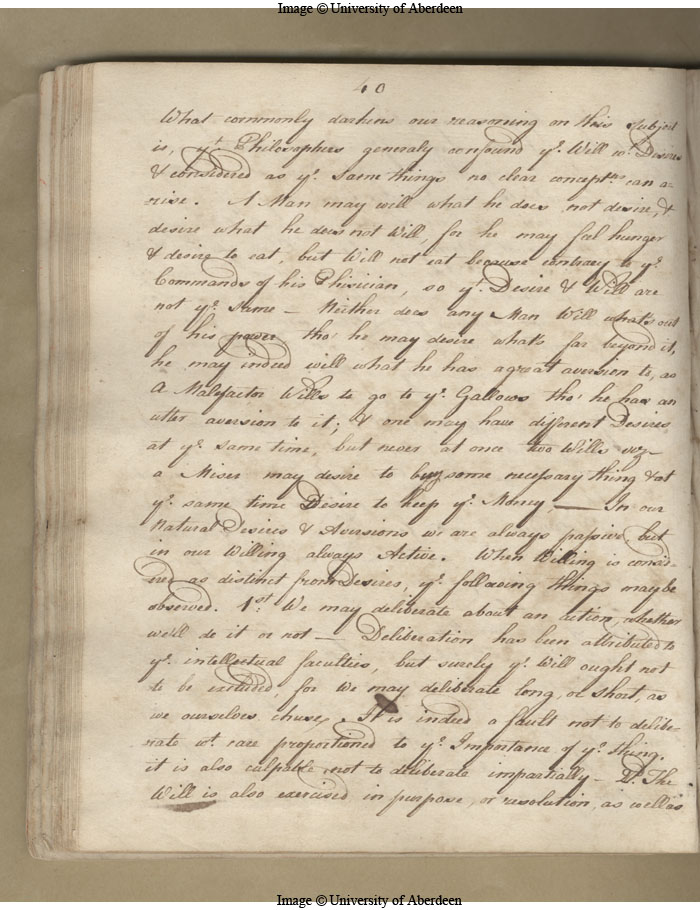 Image © University of Aberdeen
40
What commonly darkens our reasoning on this Subject
is, yt Philosophers generaly confound ye Will wt Desire
& considered as ye Same things no clear concepts can a-
rise. A Man may will what he does not desire, &
desire what he does not Will, for he may feel hunger
& desire to eat, but Will not eat because contrary to ye
Commands of his Phisician, so yt Desire & Will are
not ye Same — Neither does any Man Will what's out
of his power tho' he may desire what's far beyond it,
he may indeed will what he has a great aversion to, as
A Malefactor Wills to go to ye Gallows tho' he has an
utter aversion to it; & one may have different Desires
at ye same time, but never at once two Wills
a Miser may desire to buy some necessary thing & at
ye same time Desire to keep ye Money, — In our
Natural Desires & Aversions we are always passive but
in our Willing always Active. When Willing is consid-
ered as distinct from Desires, ye following things may be
observed. 1st We may deliberate about an action, whether
we'll do it or not — Deliberation has been attributed to
ye intellectual faculties, but surely ye Will ought not
to be excluded, for We may deliberate long, or short, as
we ourselves chuse. It is indeed a fault not to delibe-
rate wt care proportioned to ye Importance of ye thing.
it is also culpable not to deliberate impartially — The
Will is also exercised in purpose, or resolution, as well as
Image © University of Aberdeen